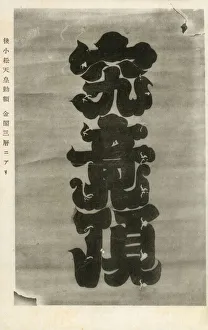 究竟頂
後小松天皇勅額 金閣三層ニアリ